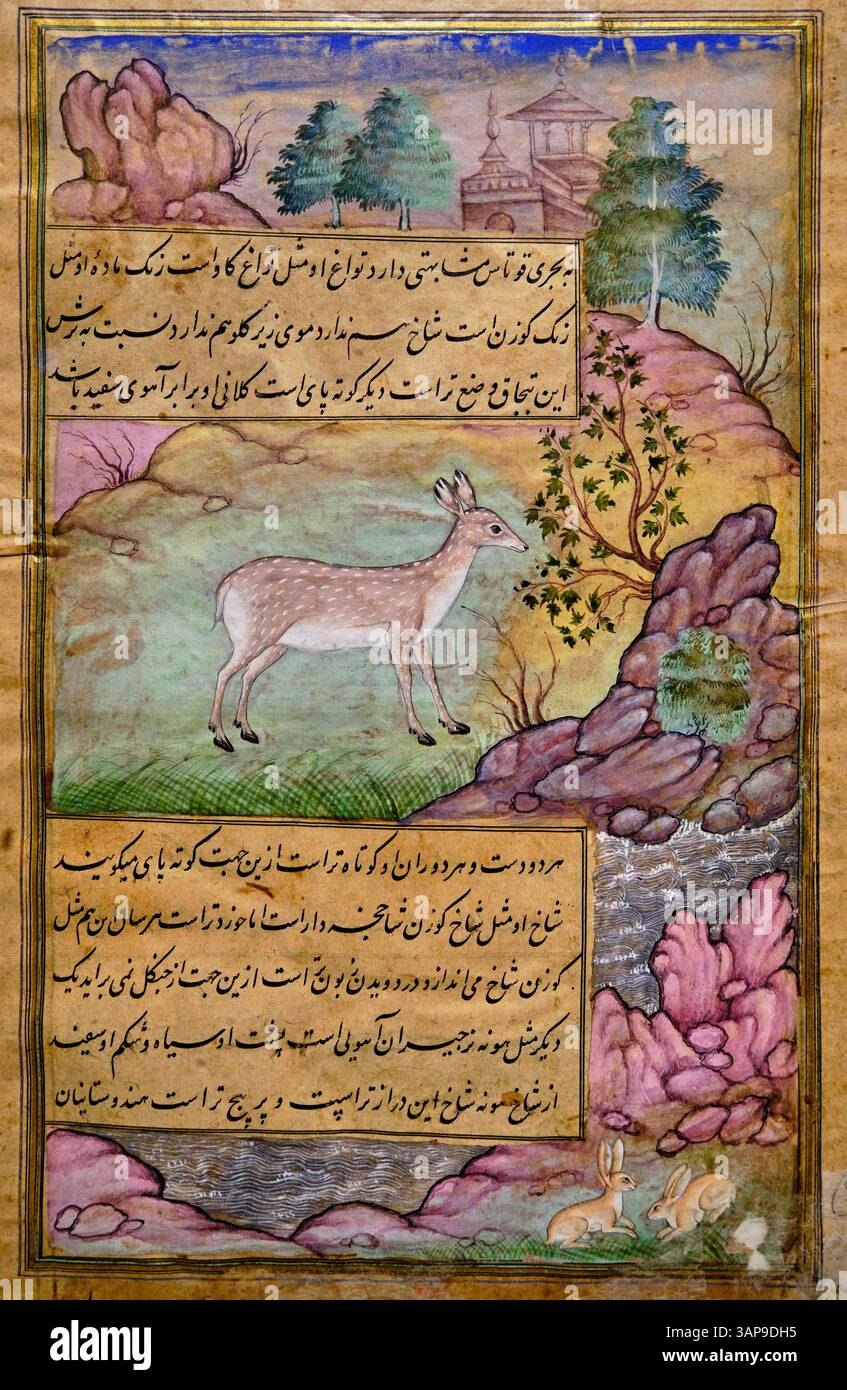 به بحری قوتاس مشابهتی دارد تواغ او مثل تواغ گاو است رنک مادهٔ او مثل
رنک کوزن است شاخ هم ندارد موی زیر کلو هم ندارد نسبت به نرش
این تبجاق وضع تراست دیکر کوته پای است کلانی او برابر آهوی سفید باشد
هر دو دست و هر دو ران او کوتاه تراست ازین جهت کوته پای میکویند
شاخ او مثل شاخ کوزن شاخچه دار است اما خورد تراست هر سال این هم مثل
کوزن شاخ می اندازد در دویدن زبون تراست ازین جهت از جنکل نمی براید یک
دیکر مثل هونه نر جیران آهویی است پشت او سیاه و شکم او سفید
از شاخ هونه شاخ این دراز تراست و پر پیچ تراست هندوستانیان
alamy
Image ID: 3AP9DH5
www.alamy.com